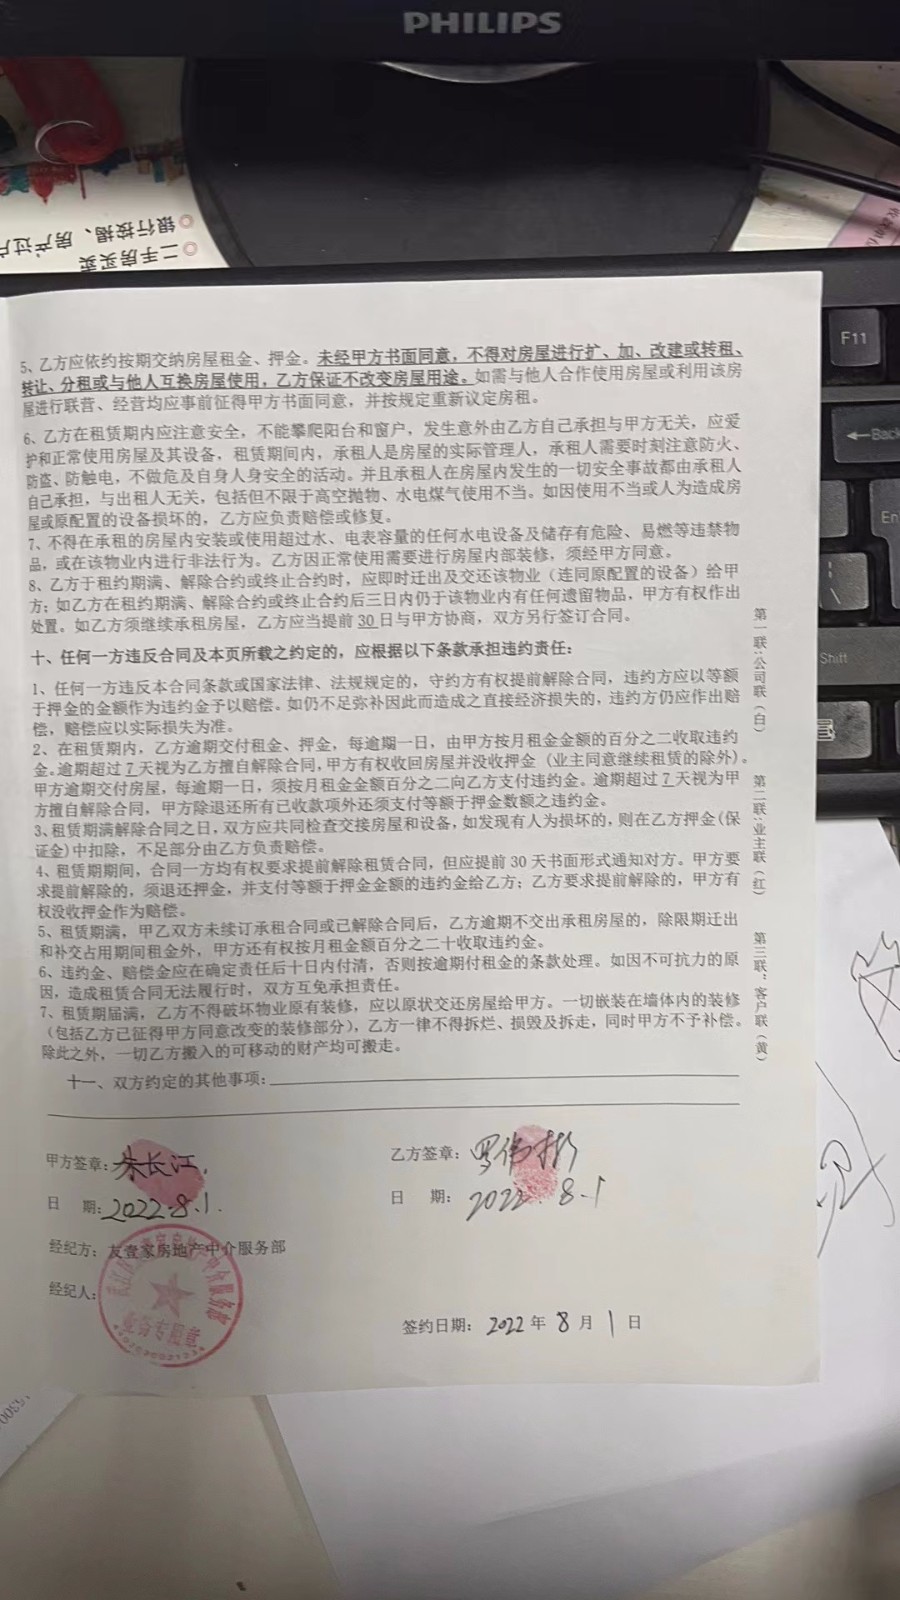 PHILIPS
◎银行按揭、房产过户
◎二手房买卖
F11
Back
En
Shift
5、乙方应依约按期交纳房屋租金、押金。未经甲方书面同意，不得对房屋进行扩、加、改建或转租、
转让、分租或与他人互换房屋使用，乙方保证不改变房屋用途。如需与他人合作使用房屋或利用该房
屋进行联营、经营均应事前征得甲方书面同意，并按规定重新议定房租。
6、乙方在租赁期内应注意安全，不能攀爬阳台和窗户，发生意外由乙方自己承担与甲方无关，应爱
护和正常使用房屋及其设备，租赁期间内，承租人是房屋的实际管理人，承租人需要时刻注意防火、
防盗、防触电，不做危及自身人身安全的活动。并且承租人在房屋内发生的一切安全事故都由承租人
自己承担，与出租人无关，包括但不限于高空抛物、水电煤气使用不当。如因使用不当或人为造成房
屋或原配置的设备损坏的，乙方应负责赔偿或修复。
7、不得在承租的房屋内安装或使用超过水、电表容量的任何水电设备及储存有危险、易燃等违禁物
品，或在该物业内进行非法行为。乙方因正常使用需要进行房屋内部装修，须经甲方同意。
8、乙方于租约期满、解除合约或终止合约时，应即时迁出及交还该物业（连同原配置的设备）给甲
方；如乙方在租约期满、解除合约或终止合约后三日内仍于该物业内有任何遗留物品，甲方有权作出
处置。如乙方须继续承租房屋，乙方应当提前30日与甲方协商，双方另行签订合同。
十、任何一方违反合同及本页所载之约定的，应根据以下条款承担违约责任：
1、任何一方违反本合同条款或国家法律、法规规定的，守约方有权提前解除合同，违约方应以等额
于押金的金额作为违约金予以赔偿。如仍不足弥补因此而造成之直接经济损失的，违约方仍应作出赔
偿，赔偿应以实际损失为准。
2、在租赁期内，乙方逾期交付租金、押金，每逾期一日，由甲方按月租金金额的百分之二收取违约
金。逾期超过7天视为乙方擅自解除合同，甲方有权收回房屋并没收押金（业主同意继续租赁的除外）。
甲方逾期交付房屋，每逾期一日，须按月租金金额百分之二向乙方支付违约金。逾期超过7天视为甲
方擅自解除合同，甲方除退还所有已收款项外还须支付等额于押金数额之违约金。
3、租赁期满解除合同之日，双方应共同检查交接房屋和设备，如发现有人为损坏的，则在乙方押金(保
证金)中扣除，不足部分由乙方负责赔偿。
4、租赁期期间，合同一方均有权要求提前解除租赁合同，但应提前30天书面形式通知对方。甲方要
求提前解除的，须退还押金，并支付等额于押金金额的违约金给乙方；乙方要求提前解除的，甲方有
权没收押金作为赔偿。
5、租赁期满，甲乙双方未续订承租合同或已解除合同后，乙方逾期不交出承租房屋的，除限期迁出
和补交占用期间租金外，甲方还有权按月租金额百分之二十收取违约金。
6、违约金、赔偿金应在确定责任后十日内付清，否则按逾期付租金的条款处理。如因不可抗力的原
因，造成租赁合同无法履行时，双方互免承担责任。
7、租赁期届满，乙方不得破坏物业原有装修，应以原状交还房屋给甲方。一切嵌装在墙体内的装修
（包括乙方已征得甲方同意改变的装修部分），乙方一律不得拆烂、损毁及拆走，同时甲方不予补偿。
除此之外，一切乙方搬入的可移动的财产均可搬走。
十一、双方约定的其他事项：
第一联：公司联（白）
第二联：业主联（红）
第三联：客户联（黄）
甲方签章：朱长江.
乙方签章：罗伟彬
日 期：2022.8.1.
日 期：2022.8.1
经纪方：友壹家房地产中介服务部
经纪人：
业务专用章
签约日期：2022年8月1日